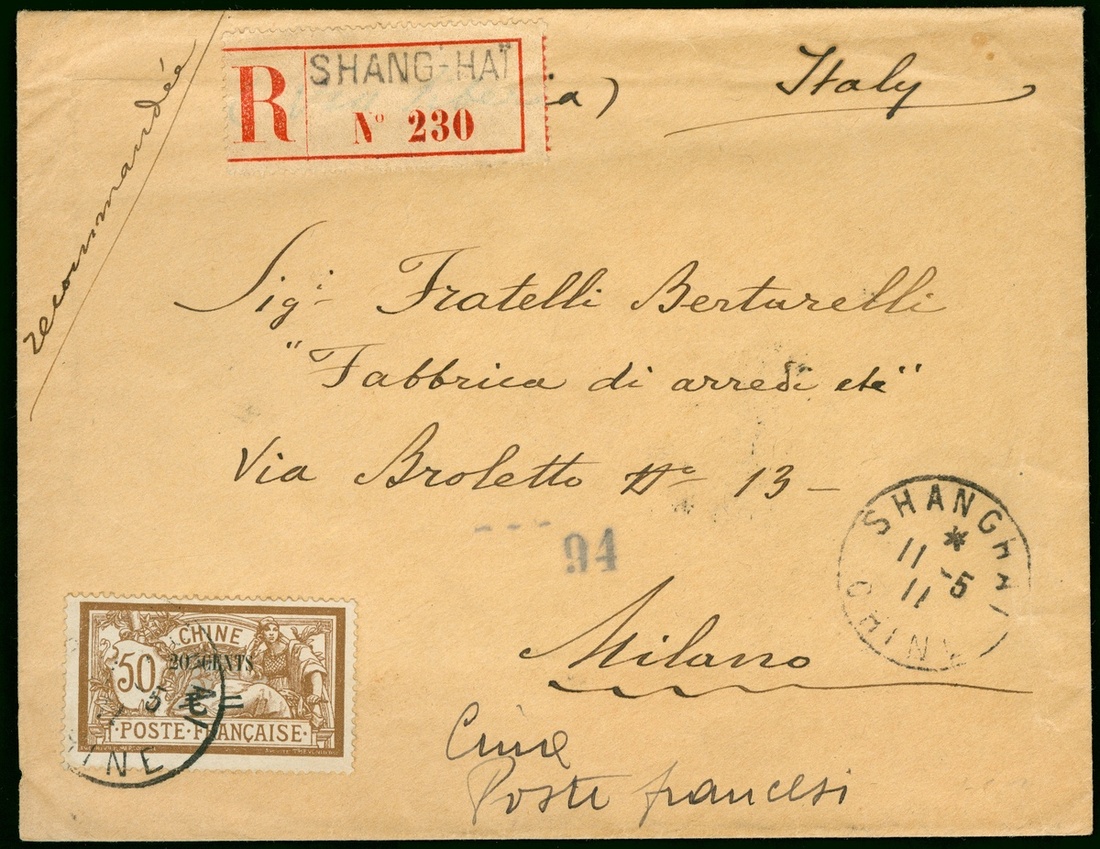 recommandée
R
SHANG-HAÏ
Nº 230
ia)
Italy
Sigi Fratelli Bertarelli
"Fabbrica di arredi etc"
Via Broletto Nº 13 -
94
SHANGHAI
11 -5
11
CHINE
Milano
CHINE
50
20 CENTS
POSTE FRANÇAISE
5
INE
Cina
Poste francesi